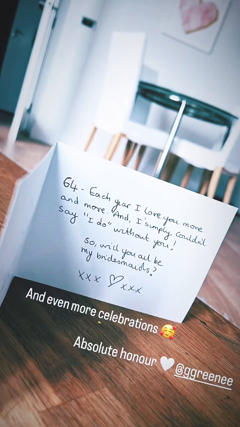 G4 - Each year I love you more
and more. And, I simply couldn't
say "I do" without you!
So, will you all be
my bridesmaids?
xxx ♡ xxx
And even more celebrations 🥰
Absolute honour 🤍 @ggreenee